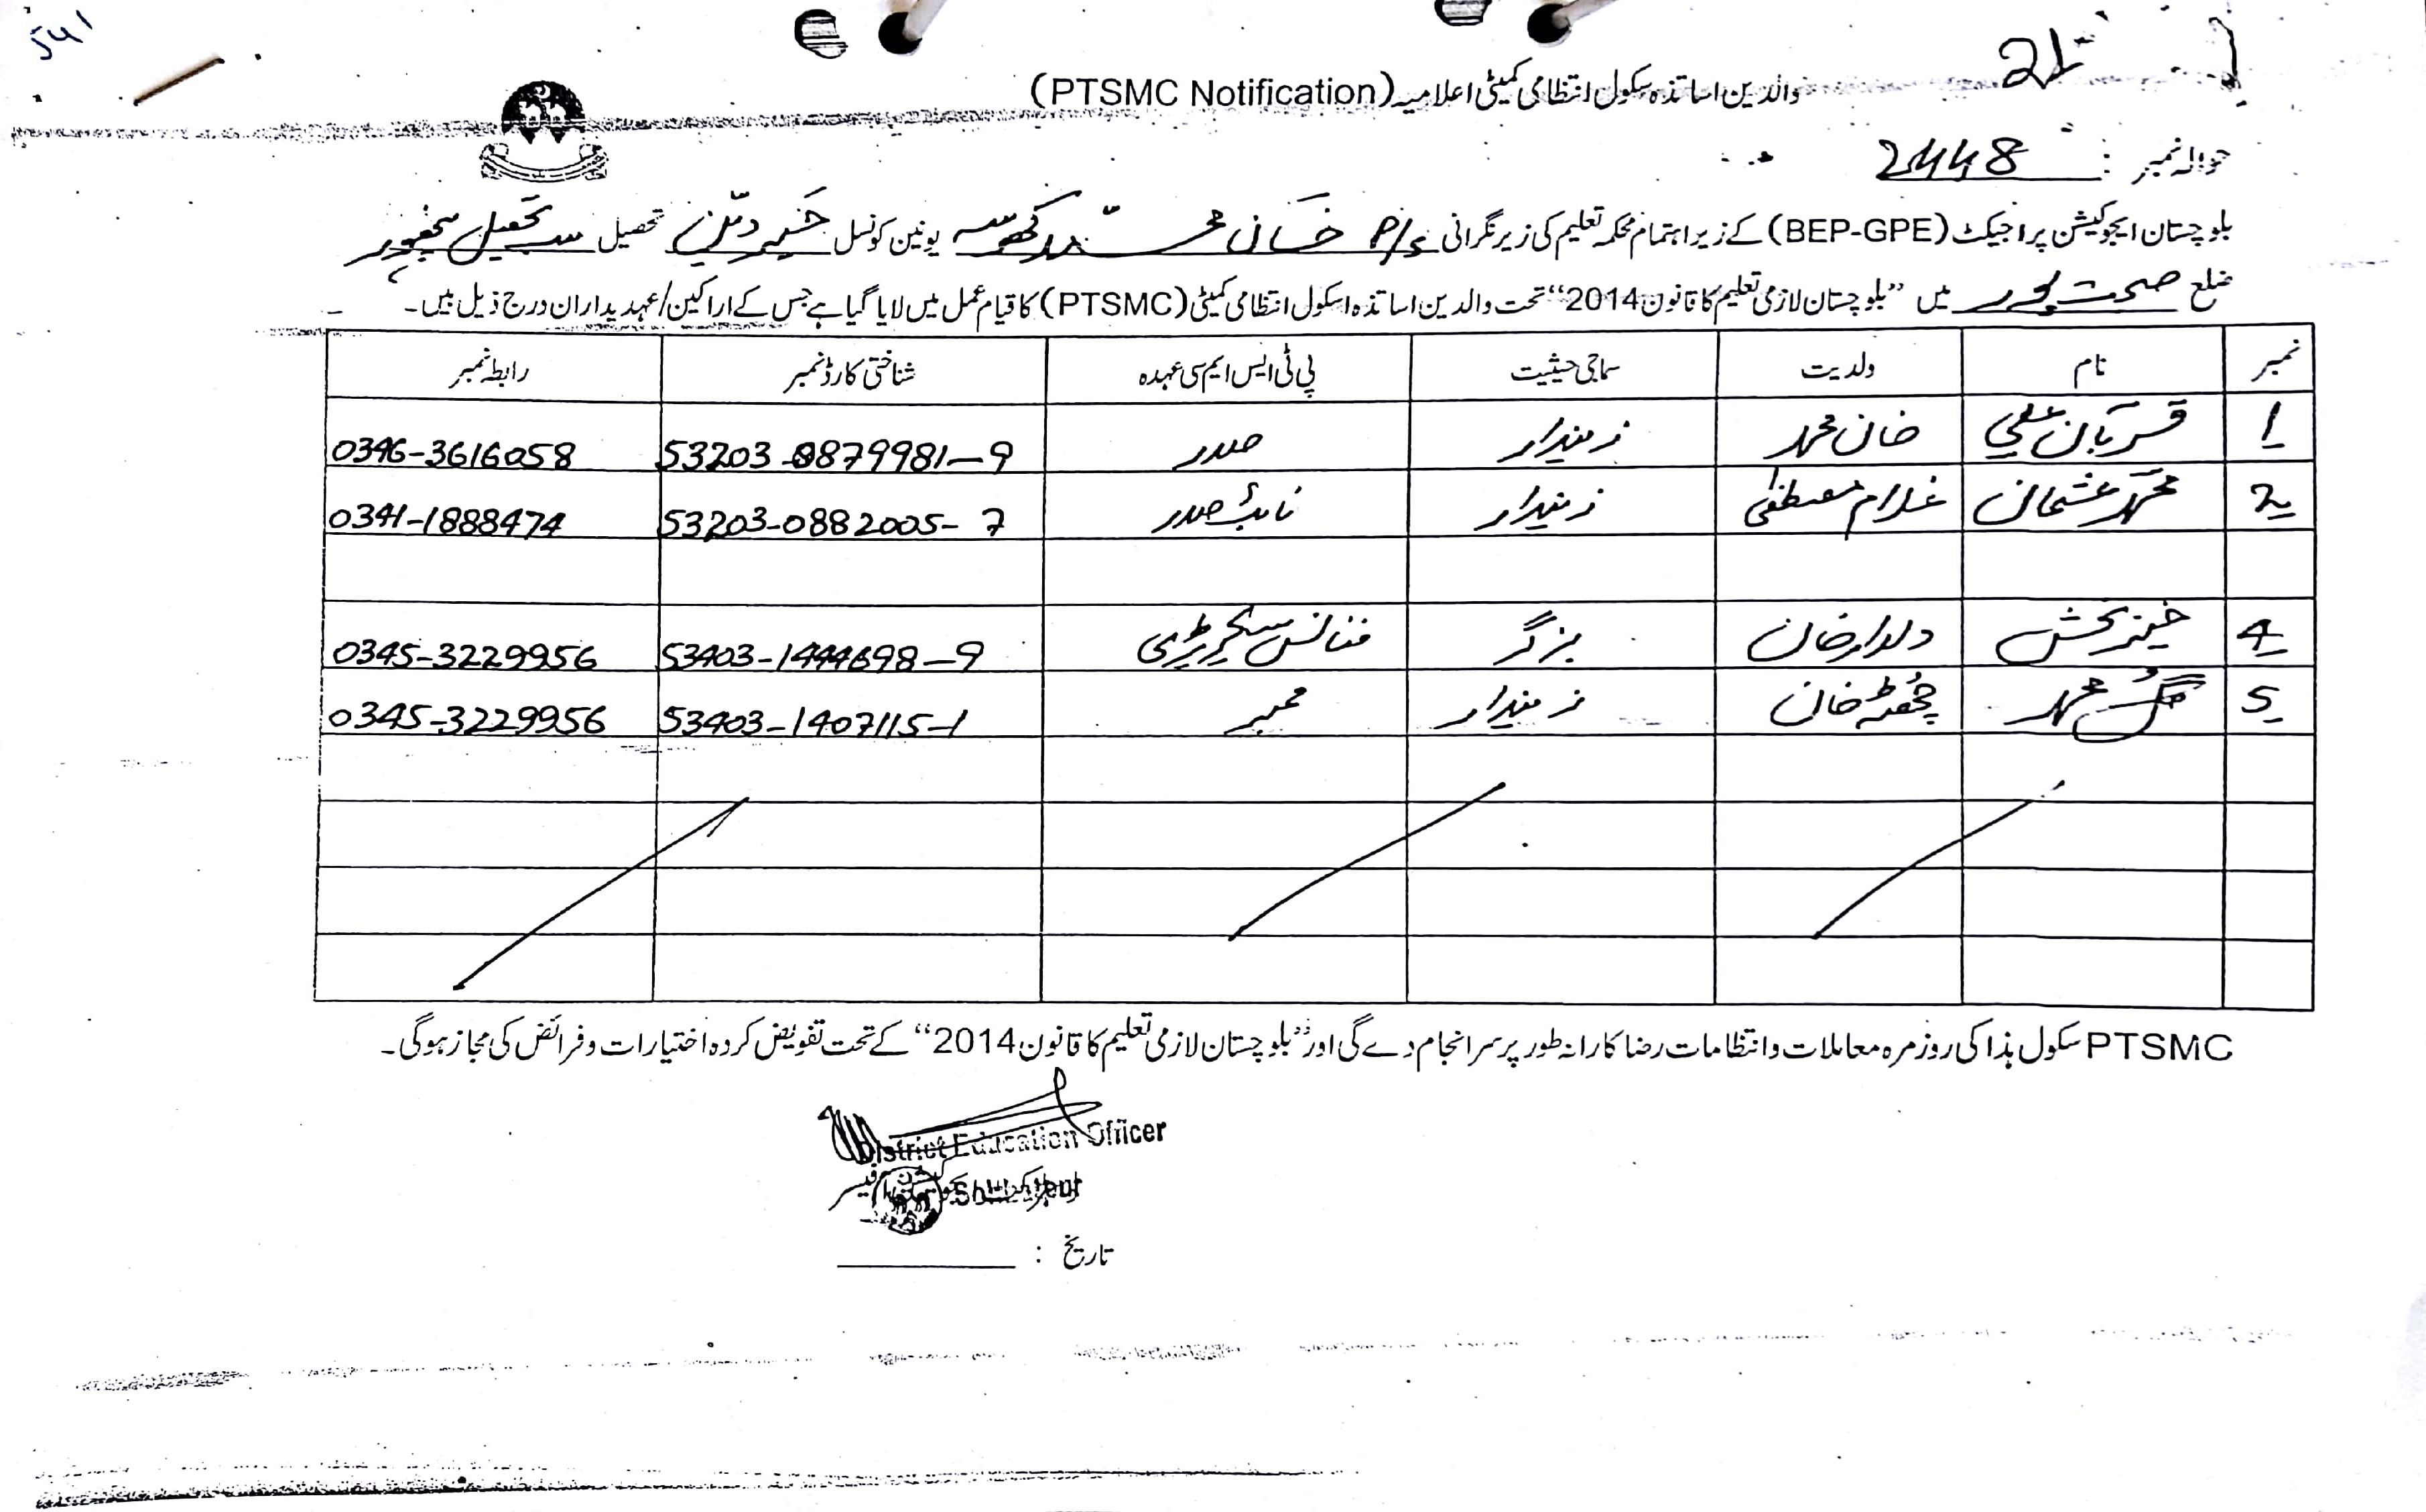 541
21
والدین اساتذہ سکول انتظامی کمیٹی اعلامیہ (PTSMC Notification)
حوالہ نمبر : 2448
بلوچستان ایجوکیشن پراجیکٹ (BEP-GPE) کے زیر اہتمام محکمہ تعلیم کی زیر نگرانی P/S خان محمد کھوسہ یونین کونسل خیر دین تحصیل
ضلع صحبت پور میں "بلوچستان لازمی تعلیم کا قانون 2014" تحت والدین اساتذہ اسکول انتظامی کمیٹی (PTSMC) کا قیام عمل میں لایا گیا ہے جس کے اراکین/عہدیداران درج ذیل ہیں۔
نمبر نام ولدیت سماجی حیثیت پی ٹی ایس ایم سی عہدہ شناختی کارڈ نمبر رابطہ نمبر
1 قربان علی خان محمد زمیندار صدر 53203-0879981-9 0346-3616058
2 محمد عثمان غلام مصطفیٰ زمیندار نائب صدر 53203-0882005-7 0341-1888474
4 خیر بخش دلدار خان بزگر فنانس سیکریٹری 53403-1444698-9 0345-3229956
5 گل محمد چُھٹہ خان زمیندار ممبر 53403-1407115-1 0345-3229956
PTSMC سکول ہذا کی روزمرہ معاملات وانتظامات رضا کارانہ طور پر سر انجام دے گی اور "بلوچستان لازمی تعلیم کا قانون 2014" کے تحت تفویض کردہ اختیارات و فرائض کی مجاز ہوگی۔
District Education Officer
تاریخ :